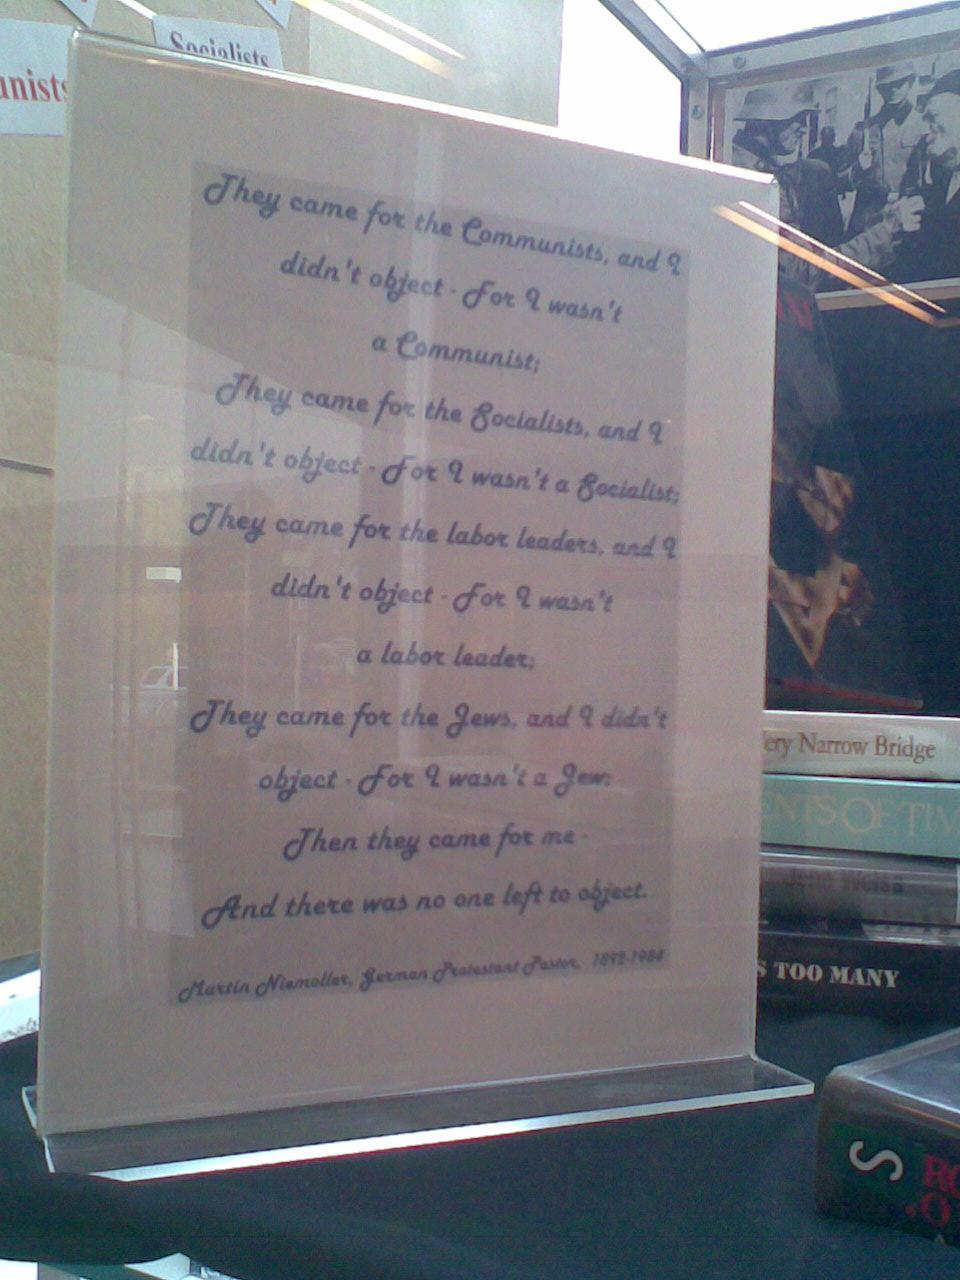 Socialists
They came for the Communists, and I
didn't object - For I wasn't
a Communist;
They came for the Socialists, and I
didn't object - For I wasn't a Socialist;
They came for the labor leaders, and I
didn't object - For I wasn't
a labor leader;
They came for the Jews, and I didn't
object - For I wasn't a Jew;
Then they came for me -
And there was no one left to object.
Martin Niemoller, German Protestant Pastor, 1892-1984
Narrow Bridge
OF
TOO MANY
S